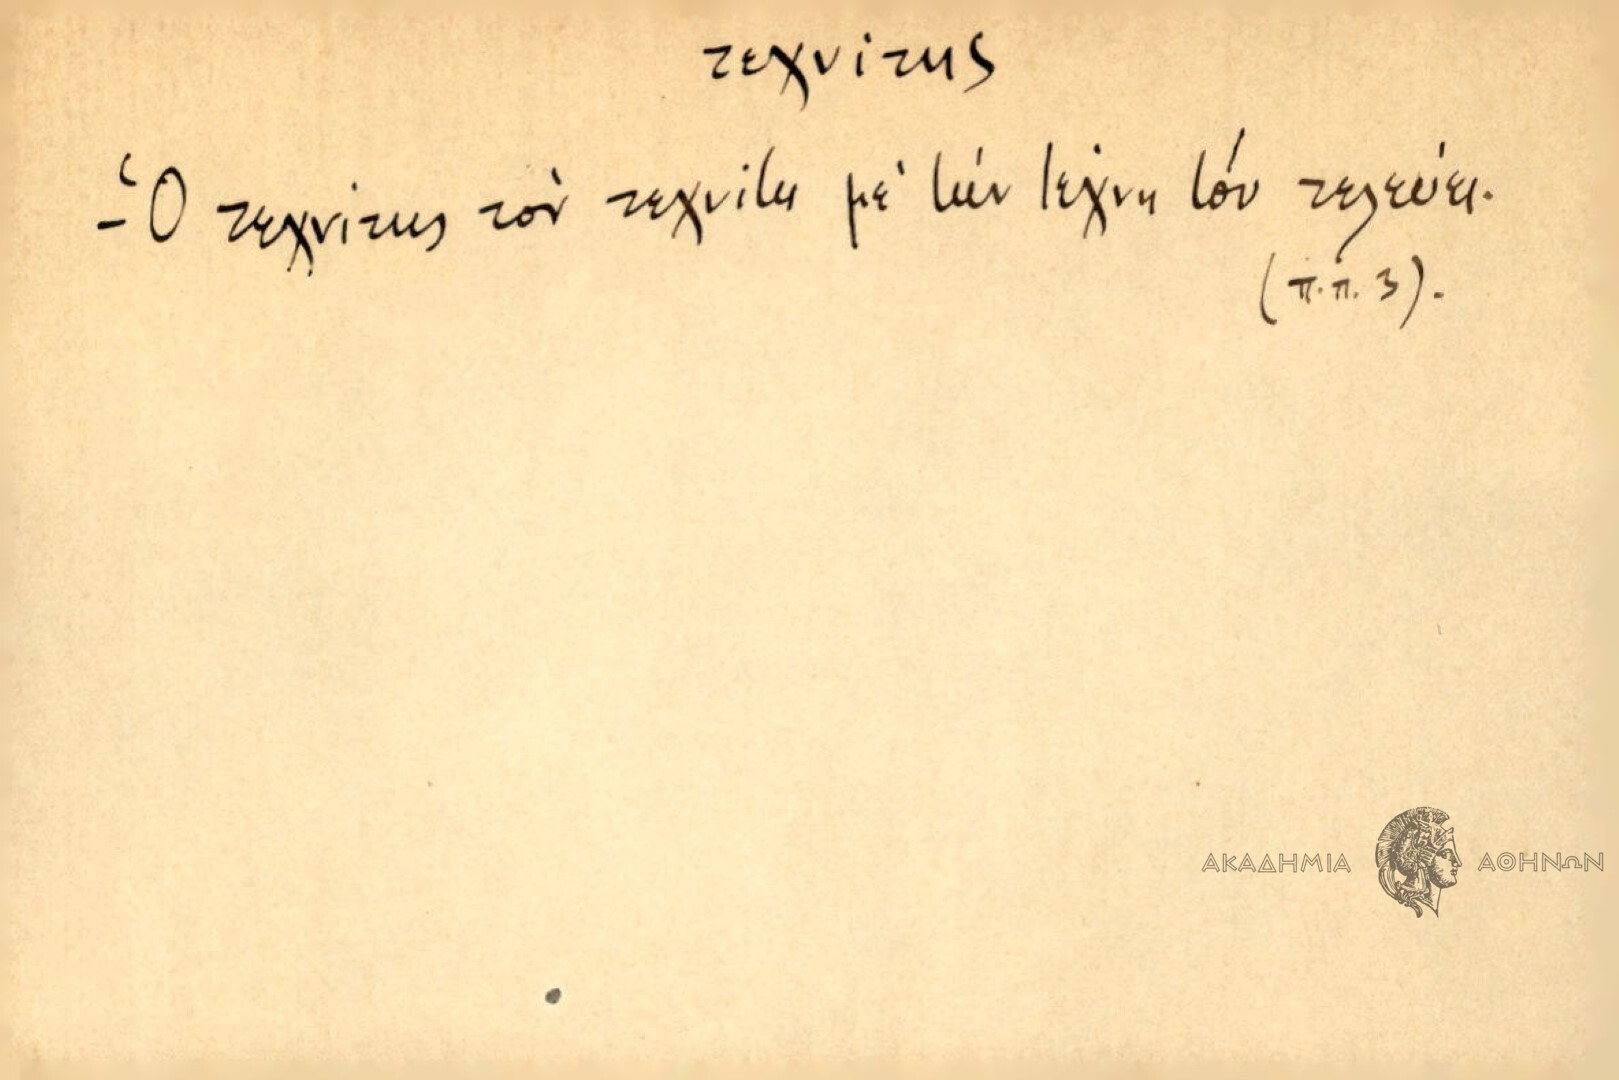 τεχνίτης
- Ὁ τεχνίτης τὸν τεχνίτη μὲ τὴν τέχνη τόν τελεύει.
(π.π. 3).
ΑΚΑΔΗΜΙΑ ΑΘΗΝΩΝ